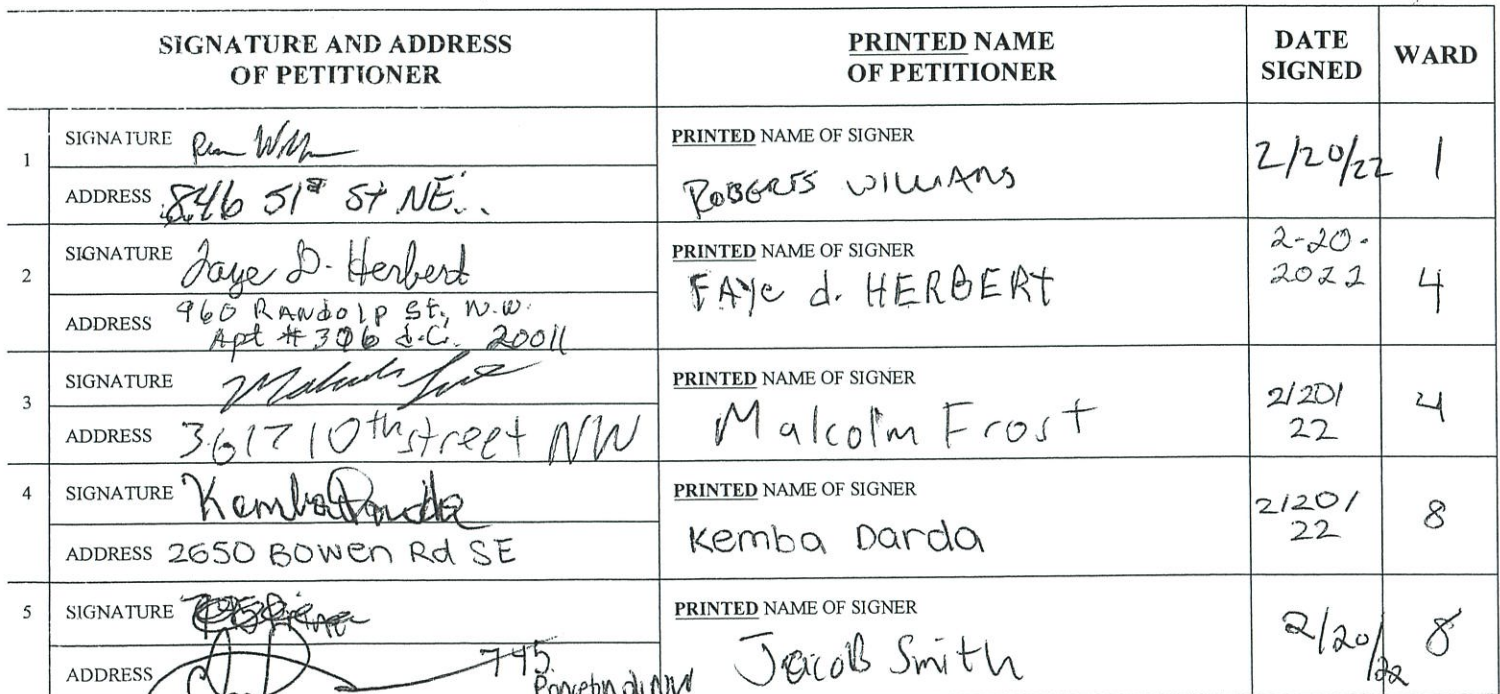 SIGNATURE AND ADDRESS
OF PETITIONER
PRINTED NAME
OF PETITIONER
DATE
SIGNED
WARD
1
SIGNATURE
ADDRESS 846 51st St NE
PRINTED NAME OF SIGNER
ROBERTS WILLIAMS
2/20/22
1
2
SIGNATURE Faye D. Herbert
ADDRESS 960 RANdolp St, N.W.
Apt # 306 d.C. 20011
PRINTED NAME OF SIGNER
FAYe d. HERBERT
2-20-
2022
4
3
SIGNATURE
ADDRESS 3617 10th street NW
PRINTED NAME OF SIGNER
Malcolm Frost
2/20/
22
4
4
SIGNATURE Kemba Darda
ADDRESS 2650 Bowen Rd SE
PRINTED NAME OF SIGNER
Kemba Darda
2/20/
22
8
5
SIGNATURE
ADDRESS 745
NW
PRINTED NAME OF SIGNER
Jacob Smith
2/20/22
8